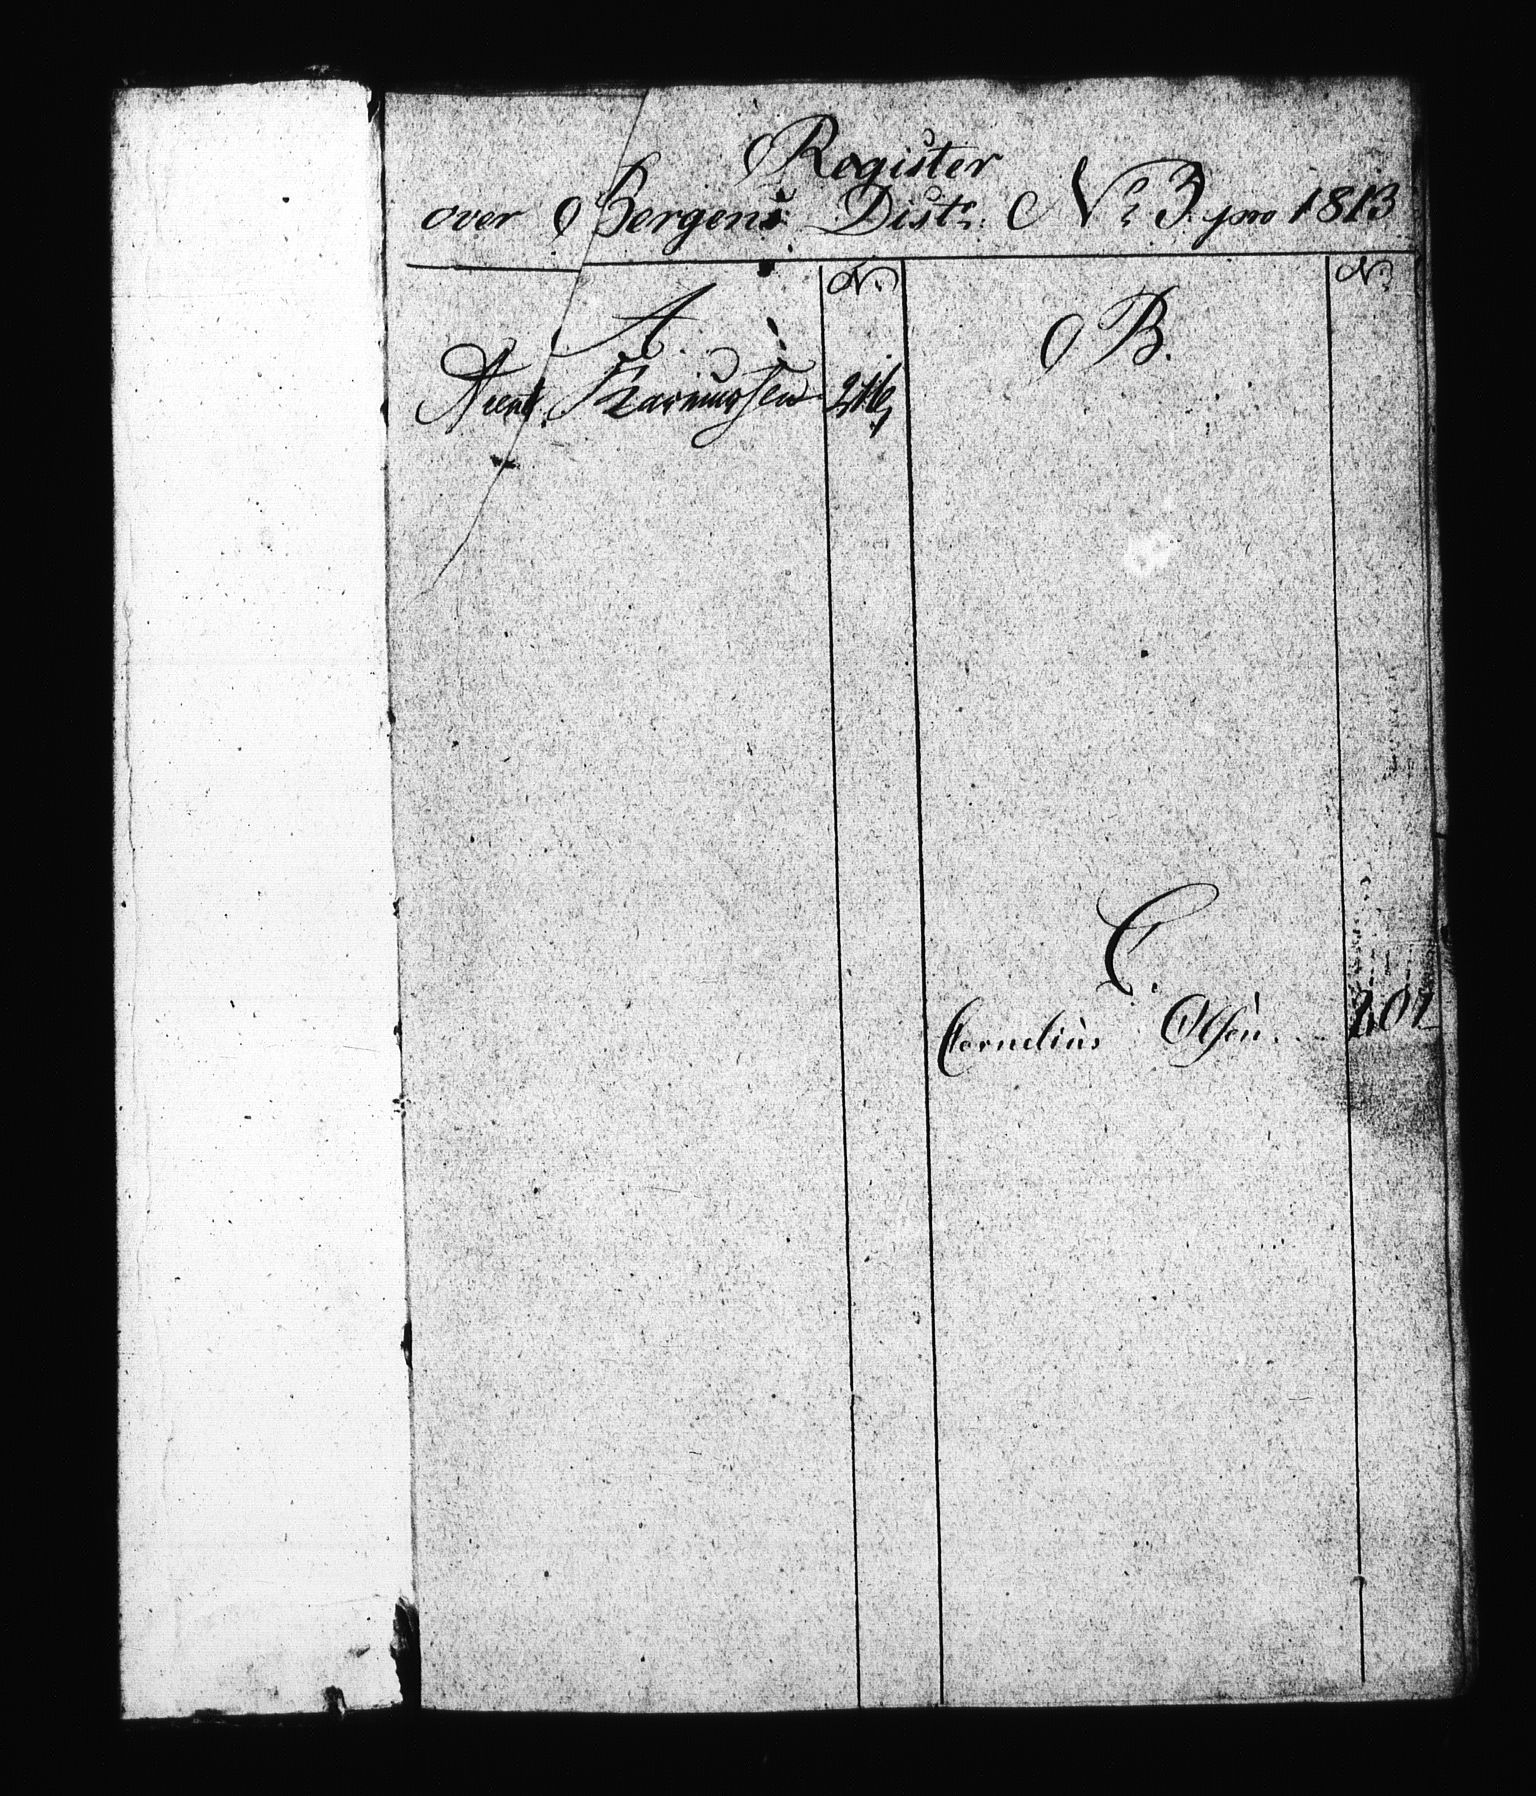 Register
over Bergens Distr: No 3 pro 1813
A. No.
Rasmussen 216
B. No.
C.
Cornelius Olsen 202